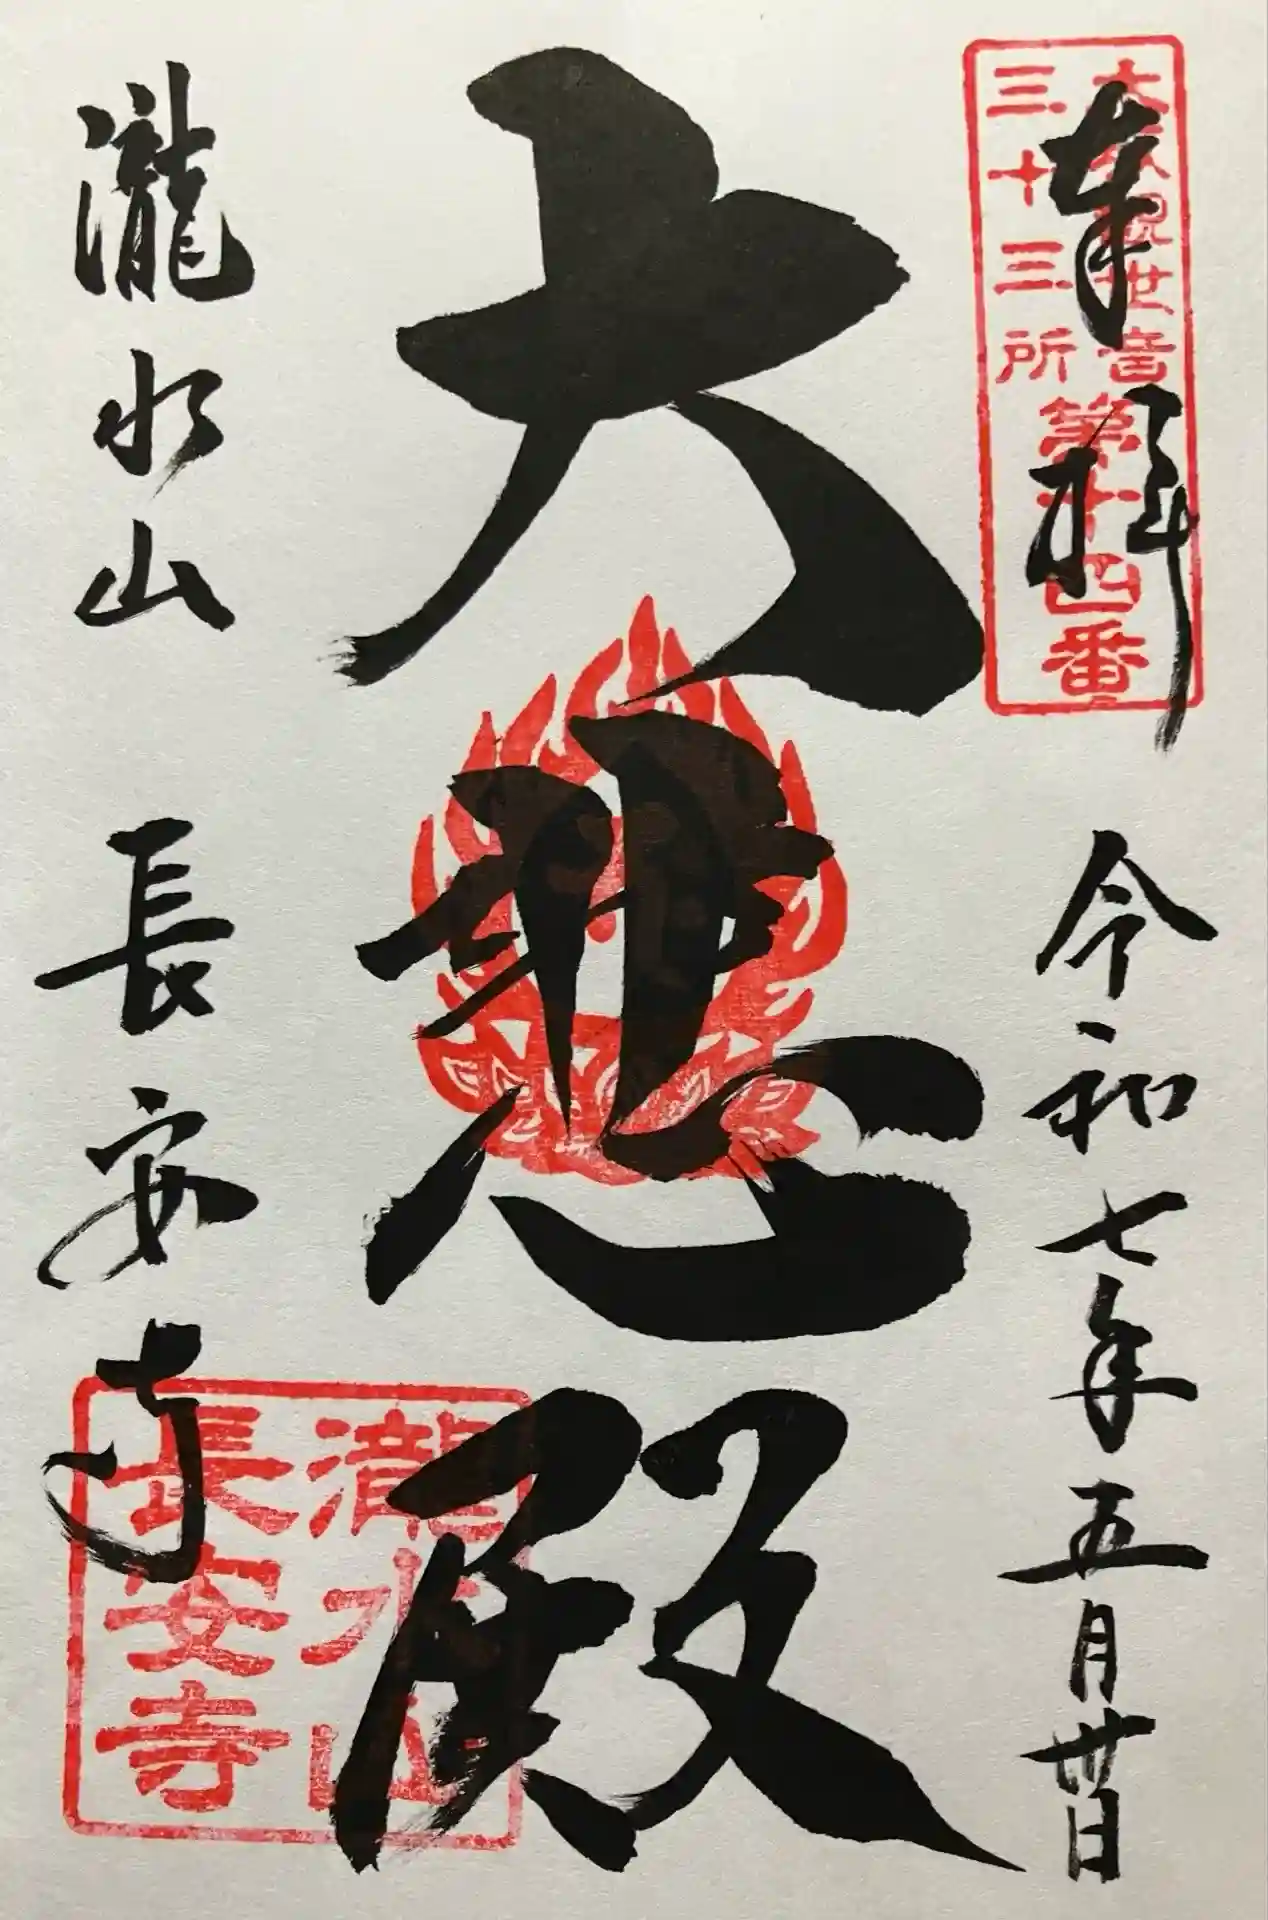 奉拝
観世音
三十三所
第十四番
令和七年五月丗日
大悲殿
瀧水山 長安寺
瀧水山
長安寺